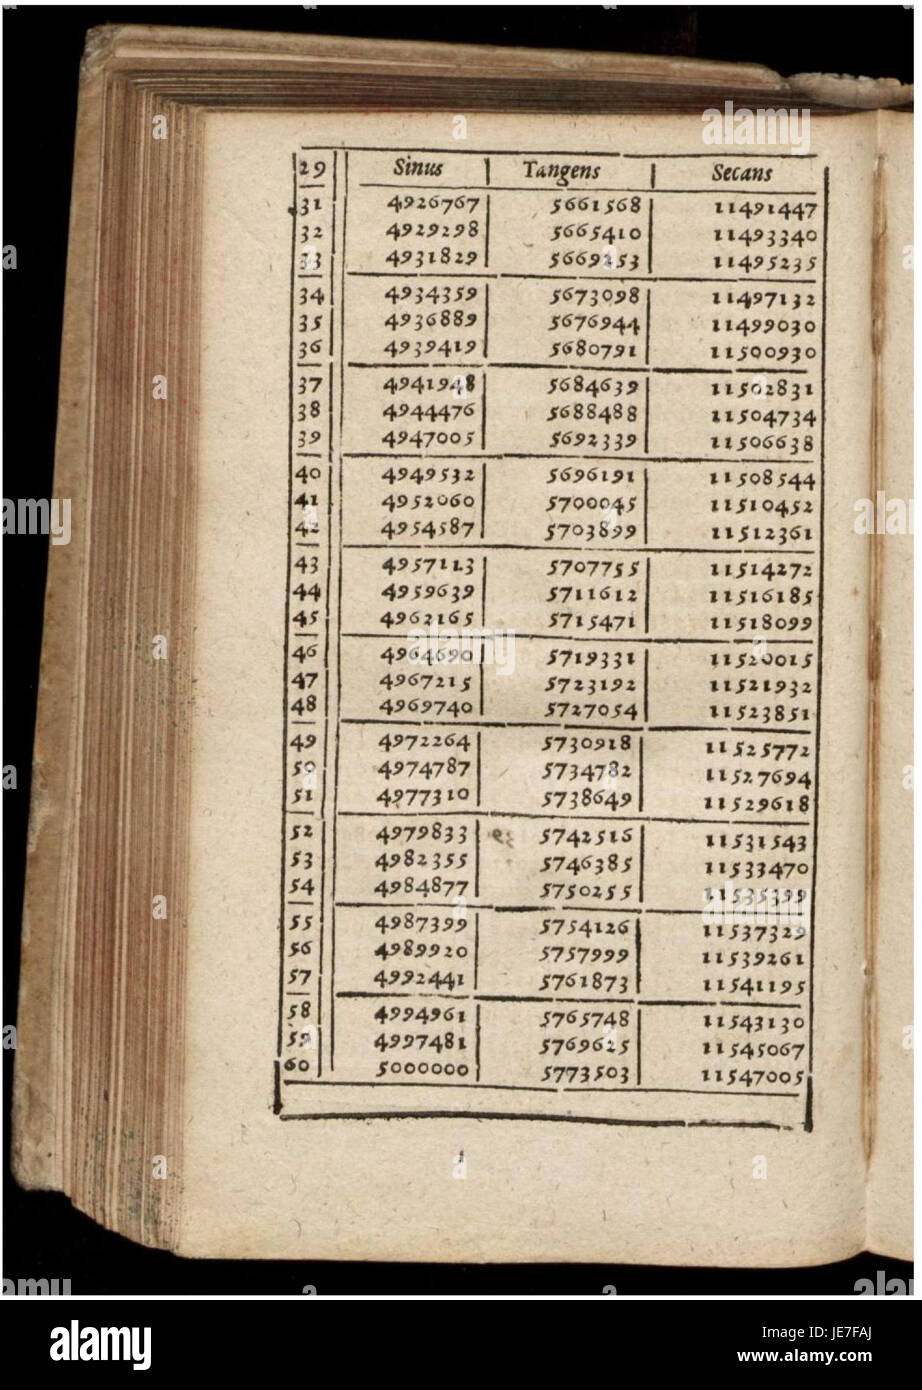 29 Sinus Tangens Secans
31 4926767 5661568 11491447
32 4929298 5665410 11493340
33 4931829 5669253 11495235
34 4934359 5673098 11497132
35 4936889 5676944 11499030
36 4939419 5680791 11500930
37 4941948 5684639 11502831
38 4944476 5688488 11504734
39 4947005 5692339 11506638
40 4949532 5696191 11508544
41 4952060 5700045 11510452
42 4954587 5703899 11512361
43 4957113 5707755 11514272
44 4959639 5711612 11516185
45 4962165 5715471 11518099
46 4964690 5719331 11520015
47 4967215 5723192 11521932
48 4969740 5727054 11523851
49 4972264 5730918 11525772
50 4974787 5734782 11527694
51 4977310 5738649 11529618
52 4979833 5742516 11531543
53 4982355 5746385 11533470
54 4984877 5750255 11535399
55 4987399 5754126 11537329
56 4989920 5757999 11539261
57 4992441 5761873 11541195
58 4994961 5765748 11543130
59 4997481 5769625 11545067
60 5000000 5773503 11547005
alamy
alamy stock photo
Image ID: JE7FAJ
www.alamy.com